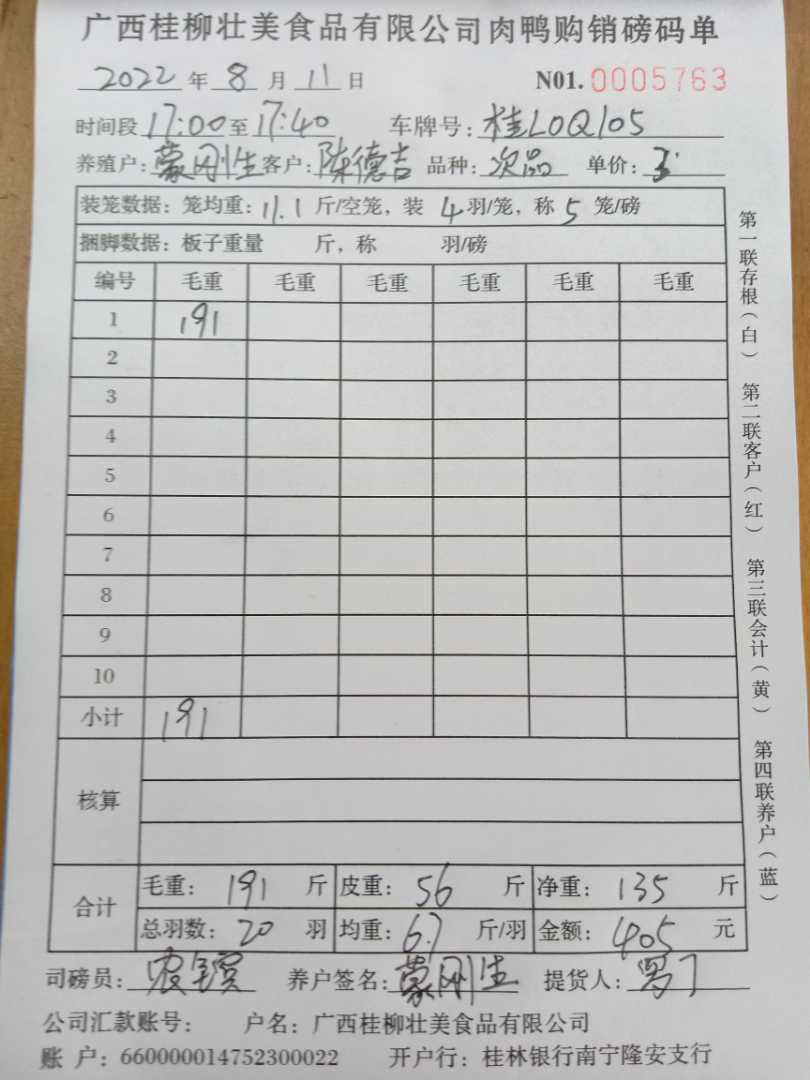 广西桂柳壮美食品有限公司肉鸭购销磅码单
2022 年 8 月 11 日 N01. 0005763
时间段 17:00 至 17:40 车牌号: 桂L0Q105
养殖户: 蒙刚生 客户: 陈德吉 品种: 次品 单价: 3
装笼数据: 笼均重: 11.1 斤/空笼, 装 4 羽/笼, 称 5 笼/磅
捆脚数据: 板子重量 斤, 称 羽/磅
编号 毛重 毛重 毛重 毛重 毛重 毛重
1 191
2
3
4
5
6
7
8
9
10
小计 191
核算
合计 毛重: 191 斤 皮重: 56 斤 净重: 135 斤
总羽数: 20 羽 均重: 6.7 斤/羽 金额: 405 元
司磅员: 养户签名: 蒙刚生 提货人:
公司汇款账号: 户名: 广西桂柳壮美食品有限公司
账 户: 660000014752300022 开户行: 桂林银行南宁隆安支行
第一联存根(白) 第二联客户(红) 第三联会计(黄) 第四联养户(蓝)